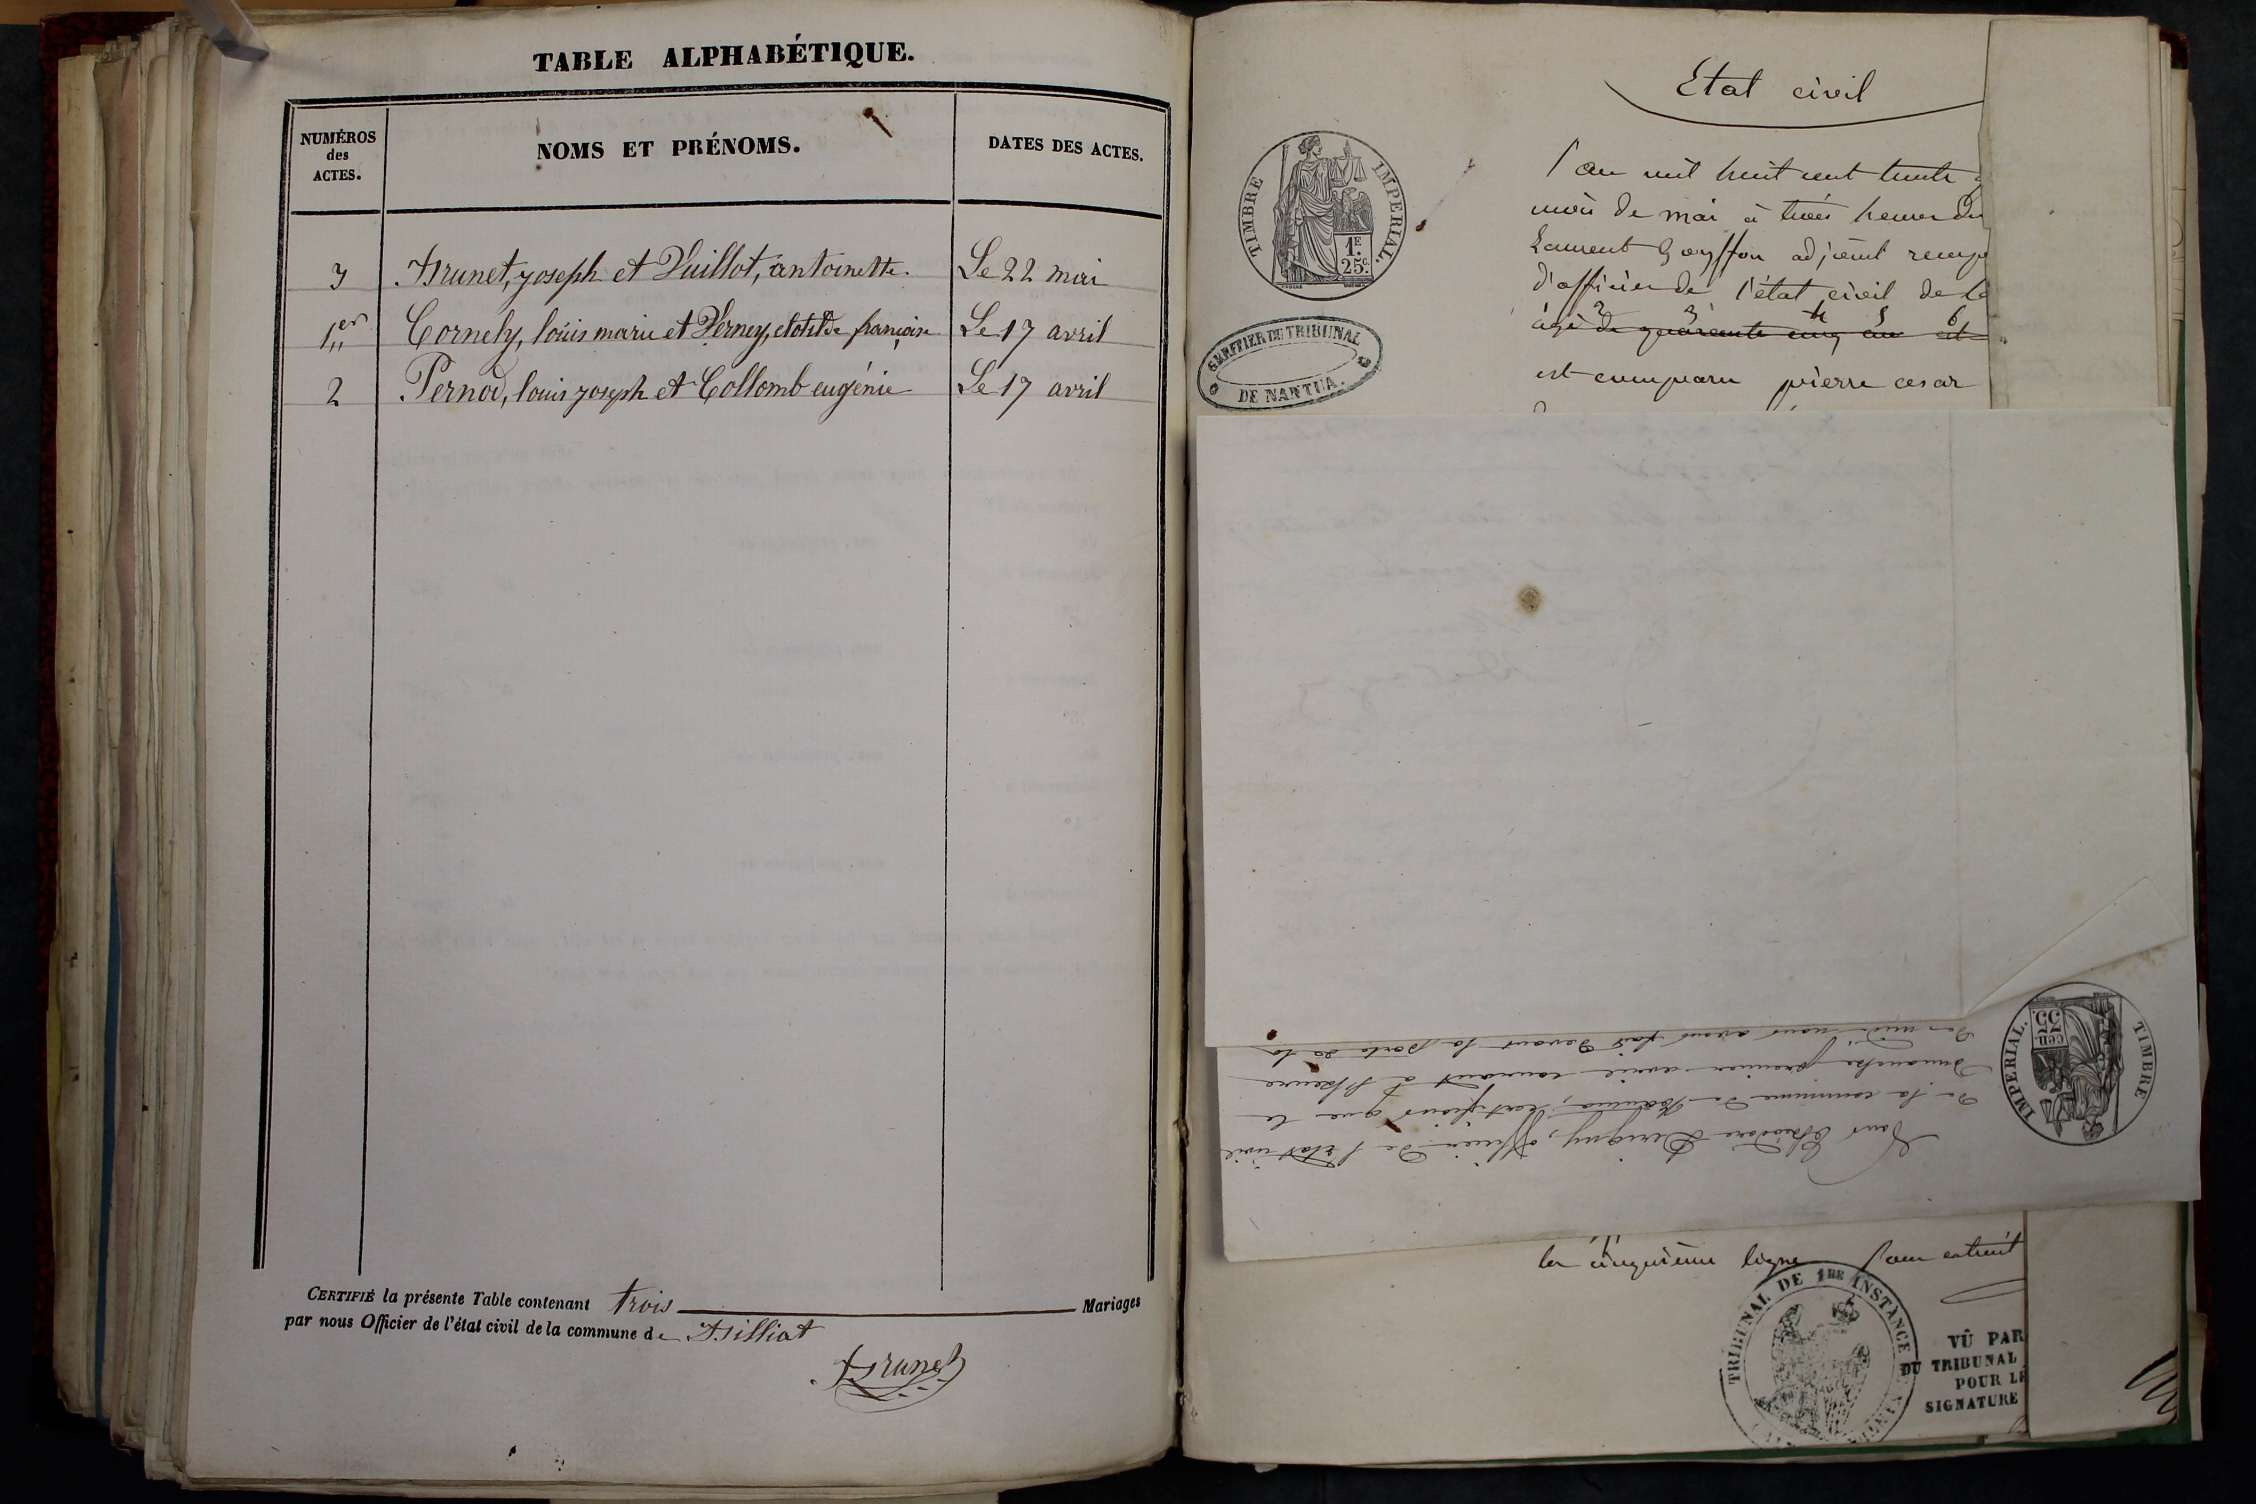 TABLE ALPHABÉTIQUE.
NUMÉROS
des
ACTES.
NOMS ET PRÉNOMS.
DATES DES ACTES.
3 Brunet, joseph et Vuillot, antoinette. Le 22 mai
1er Cornely, louis marie et Verney, clotilde françoise Le 17 avril
2 Pernod, louis joseph et Collomb eugénie Le 17 avril
CERTIFIÉ la présente Table contenant trois Mariages
par nous Officier de l'état civil de la commune de Billiat
Brunet
Etat civil
TIMBRE IMPERIAL.
1F.
25c.
l'an mil huit cent trente
mois de mai à trois heures du
Laurent Goyffon adjoint remp
d'officier de l'état civil de la
2 3 4 5 6
âgé de quarante cinq ans et
est comparu pierre cesar
GREFFIER DU TRIBUNAL
DE NANTUA.
de midi nous avons fait devant la porte de la
dimanche premier avril courant à l'heure
de la commune de certifions que le
Nous Théodore officier de l'état civil
TIMBRE IMPERIAL.
75
cen.
la cinquième ligne pour extrait
TRIBUNAL DE 1RE INSTANCE
VÛ PAR
DU TRIBUNAL
POUR LE
SIGNATURE